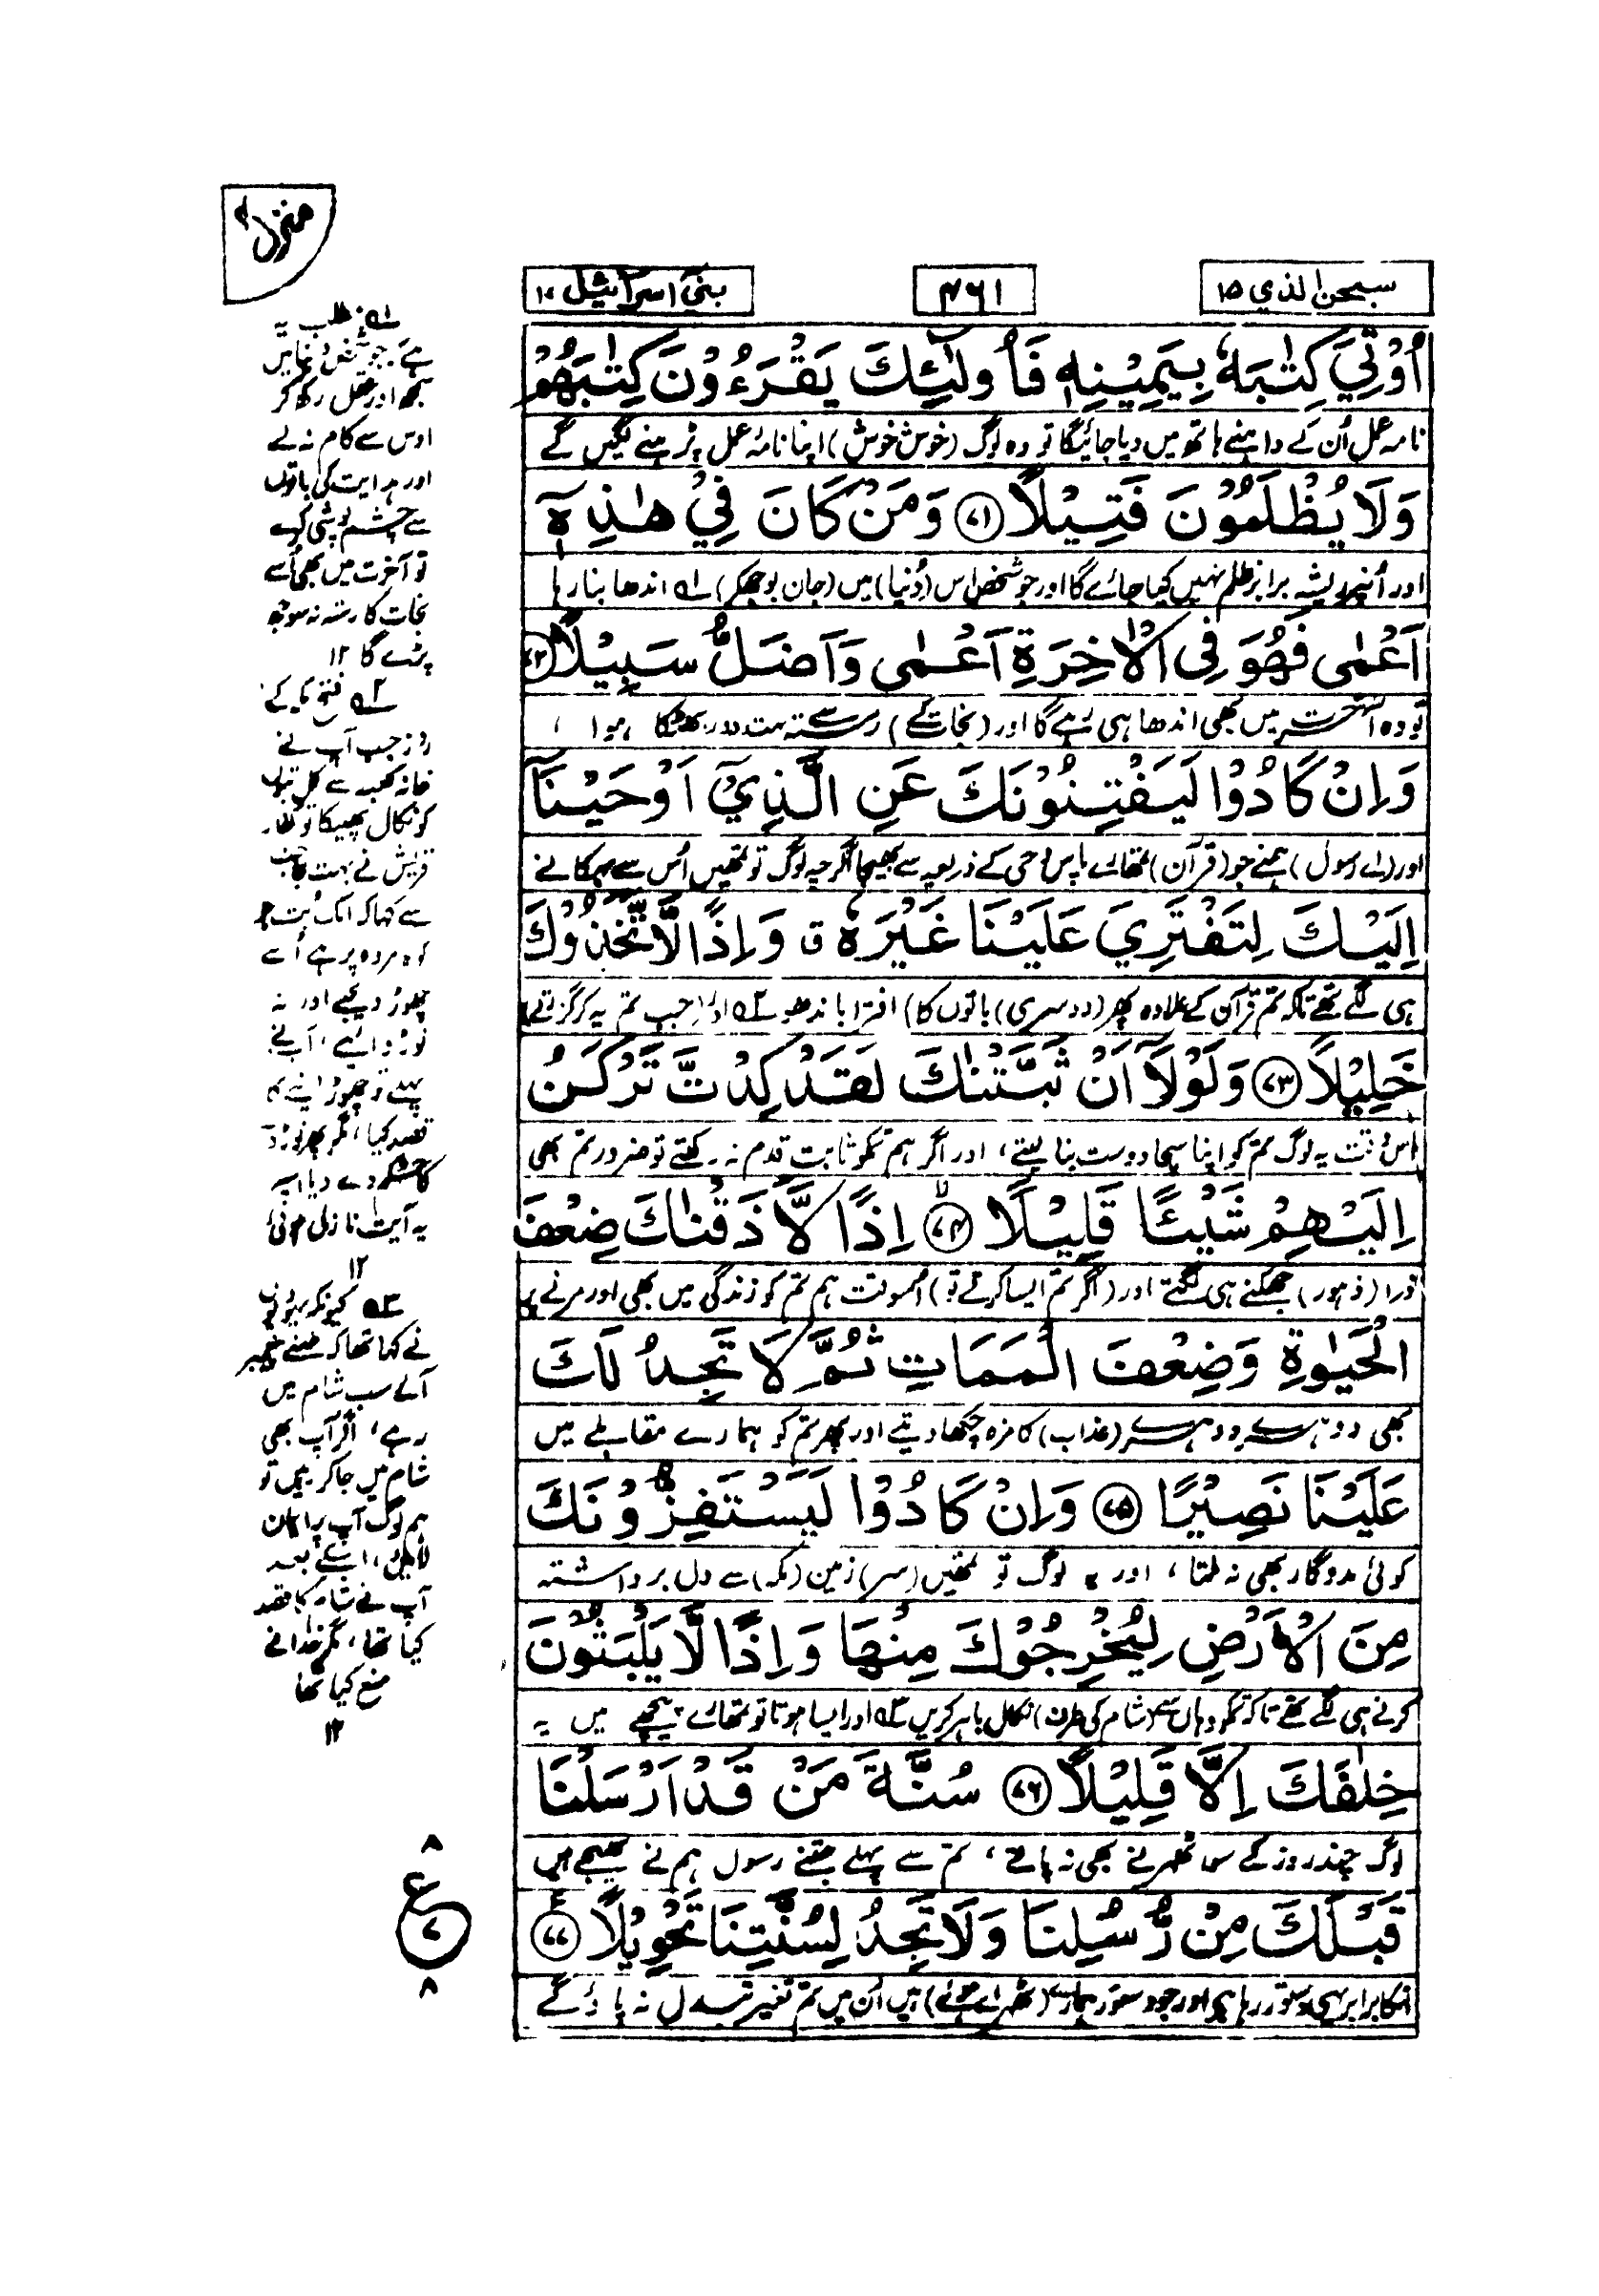 منزل ۴
سبحن الذي ۱۵
۴۶۱
بني اسرآئيل ۱۷
اُوْتِيَ كِتٰبَهٗ بِيَمِيْنِهٖ فَاُولٰٓئِكَ يَقْرَءُوْنَ كِتٰبَهُمْ
نامہ عمل اُن کے داہنے ہاتھ میں دیا جائیگا تو وہ لوگ (خوش خوش) اپنا نامۂ عمل پڑہنے لگیں گے
وَلَا يُظْلَمُوْنَ فَتِيْلًا ﴿۷۱﴾ وَمَنْ كَانَ فِيْ هٰذِهٖٓ
اور اُنپر ریشہ برابر ظلم نہیں کیا جائے گا اور جو شخص اس (دُنیا) میں (جان بوجھکر) ۱؎ اندھا بنا رہا
اَعْمٰى فَهُوَ فِى الْاٰخِرَةِ اَعْمٰى وَاَضَلُّ سَبِيْلًا ﴿۷۲﴾
تو وہ آخرت میں بھی اندھا ہی رہے گا اور (نجات کے) رستے سے بہت دور بھٹکا ہوا
وَاِنْ كَادُوْا لَيَفْتِنُوْنَكَ عَنِ الَّذِيْٓ اَوْحَيْنَآ
اور (اے رسول) ہمنے جو (قرآن) تمھارے پاس وحی کے ذریعہ سے بھیجا اگرچہ لوگ تو تمھیں اُس سے بہکانے
اِلَيْكَ لِتَفْتَرِيَ عَلَيْنَا غَيْرَهٗ ق وَاِذًا لَّاتَّخَذُوْكَ
ہی لگے تھے تاکہ تم قرآن کے علاوہ پھر (دوسری) باتوں کا) افترا باندھو ۲؎ اور جب تم یہ کر گزرتے
خَلِيْلًا ﴿۷۳﴾ وَلَوْلَآ اَنْ ثَبَّتْنٰكَ لَقَدْ كِدْتَّ تَرْكَنُ
اس وقت یہ لوگ تم کو اپنا سچا دوست بنا لیتے، اور اگر ہم تمکو ثابت قدم نہ رکھتے تو ضرور تم بھی
اِلَيْهِمْ شَيْئًا قَلِيْلًا ﴿۷۴﴾ اِذًا لَّاَذَقْنٰكَ ضِعْفَ
ذرا (ظہور) جھکنے ہی لگتے اور (اگر تم ایسا کرتے تو) اسوقت ہم تم کو زندگی میں بھی اور مرنے پر
الْحَيٰوةِ وَضِعْفَ الْمَمَاتِ ثُمَّ لَا تَجِدُ لَكَ
بھی دوہرے دوہرے (عذاب) کا مزہ چکھا دیتے اور پھر تم کو ہمارے مقابلے میں
عَلَيْنَا نَصِيْرًا ﴿۷۵﴾ وَاِنْ كَادُوْا لَيَسْتَفِزُّوْنَكَ
کوئی مددگار بھی نہ ملتا، اور یہ لوگ تو تمھیں (سر) زمین (مکہ) سے دل برداشتہ
مِنَ الْاَرْضِ لِيُخْرِجُوْكَ مِنْهَا وَاِذًا لَّا يَلْبَثُوْنَ
کرنے ہی لگے تھے تاکہ تمکو وہاں سے (شام کی طرف) نکال باہر کریں ۳؎ اور ایسا ہوتا تو تمھارے پیچھے میں یہ
خِلٰفَكَ اِلَّا قَلِيْلًا ﴿۷۶﴾ سُنَّةَ مَنْ قَدْ اَرْسَلْنَا
لوگ چند روز کے سوا ٹھہرنے بھی نہ پاتے، تم سے پہلے جتنے رسول ہم نے بھیجے ہیں
قَبْلَكَ مِنْ رُّسُلِنَا وَلَا تَجِدُ لِسُنَّتِنَا تَحْوِيْلًا ﴿۷۷﴾
انکا برابر یہی دستور رہا ہے اور جو دستور ہمارے (ٹھہرائے ہوئے) ہیں اُن میں تم تغیر تبدل نہ پاؤ گے
۱؎ مطلب یہ
ہے جو شخص دنیا میں
سمجھ اور عقل رکھ کر
اوس سے کام نہ لے
اور ہدایت کی باتوں
سے چشم پوشی کرے
تو آخرت میں بھی اُسے
نجات کا رستہ نہ سوجھ
پڑے گا ۱۲
۲؎ فتح مکہ کے
روز جب آپ نے
خانہ کعبہ سے کل بتوں
کو نکال پھینکا تو کفار
قریش نے بہت
سے کہا کہ ایک بُت
کوہ مروہ پر ہے اُسے
چھوڑ دیجیے اور نہ
توڑوائیے، آپنے
پہلے تو چھوڑ دینے کا
قصد کیا، مگر پھر توڑنے
کا حکم دے دیا اسپر
یہ آیت نازل ہوئی
۱۲
۳؎ کیونکہ یہودیوں
نے کہا تھا کہ جتنے پیغمبر
آئے سب شام میں
رہے، اگر آپ بھی
شام میں جا کر رہیں تو
ہم لوگ آپ پر ایمان
لائیں، اسکے بعد
آپ نے شام کا قصد
کیا تھا، مگر خدا نے
منع کیا تھا
۱۲
۸
ع
۷
۸